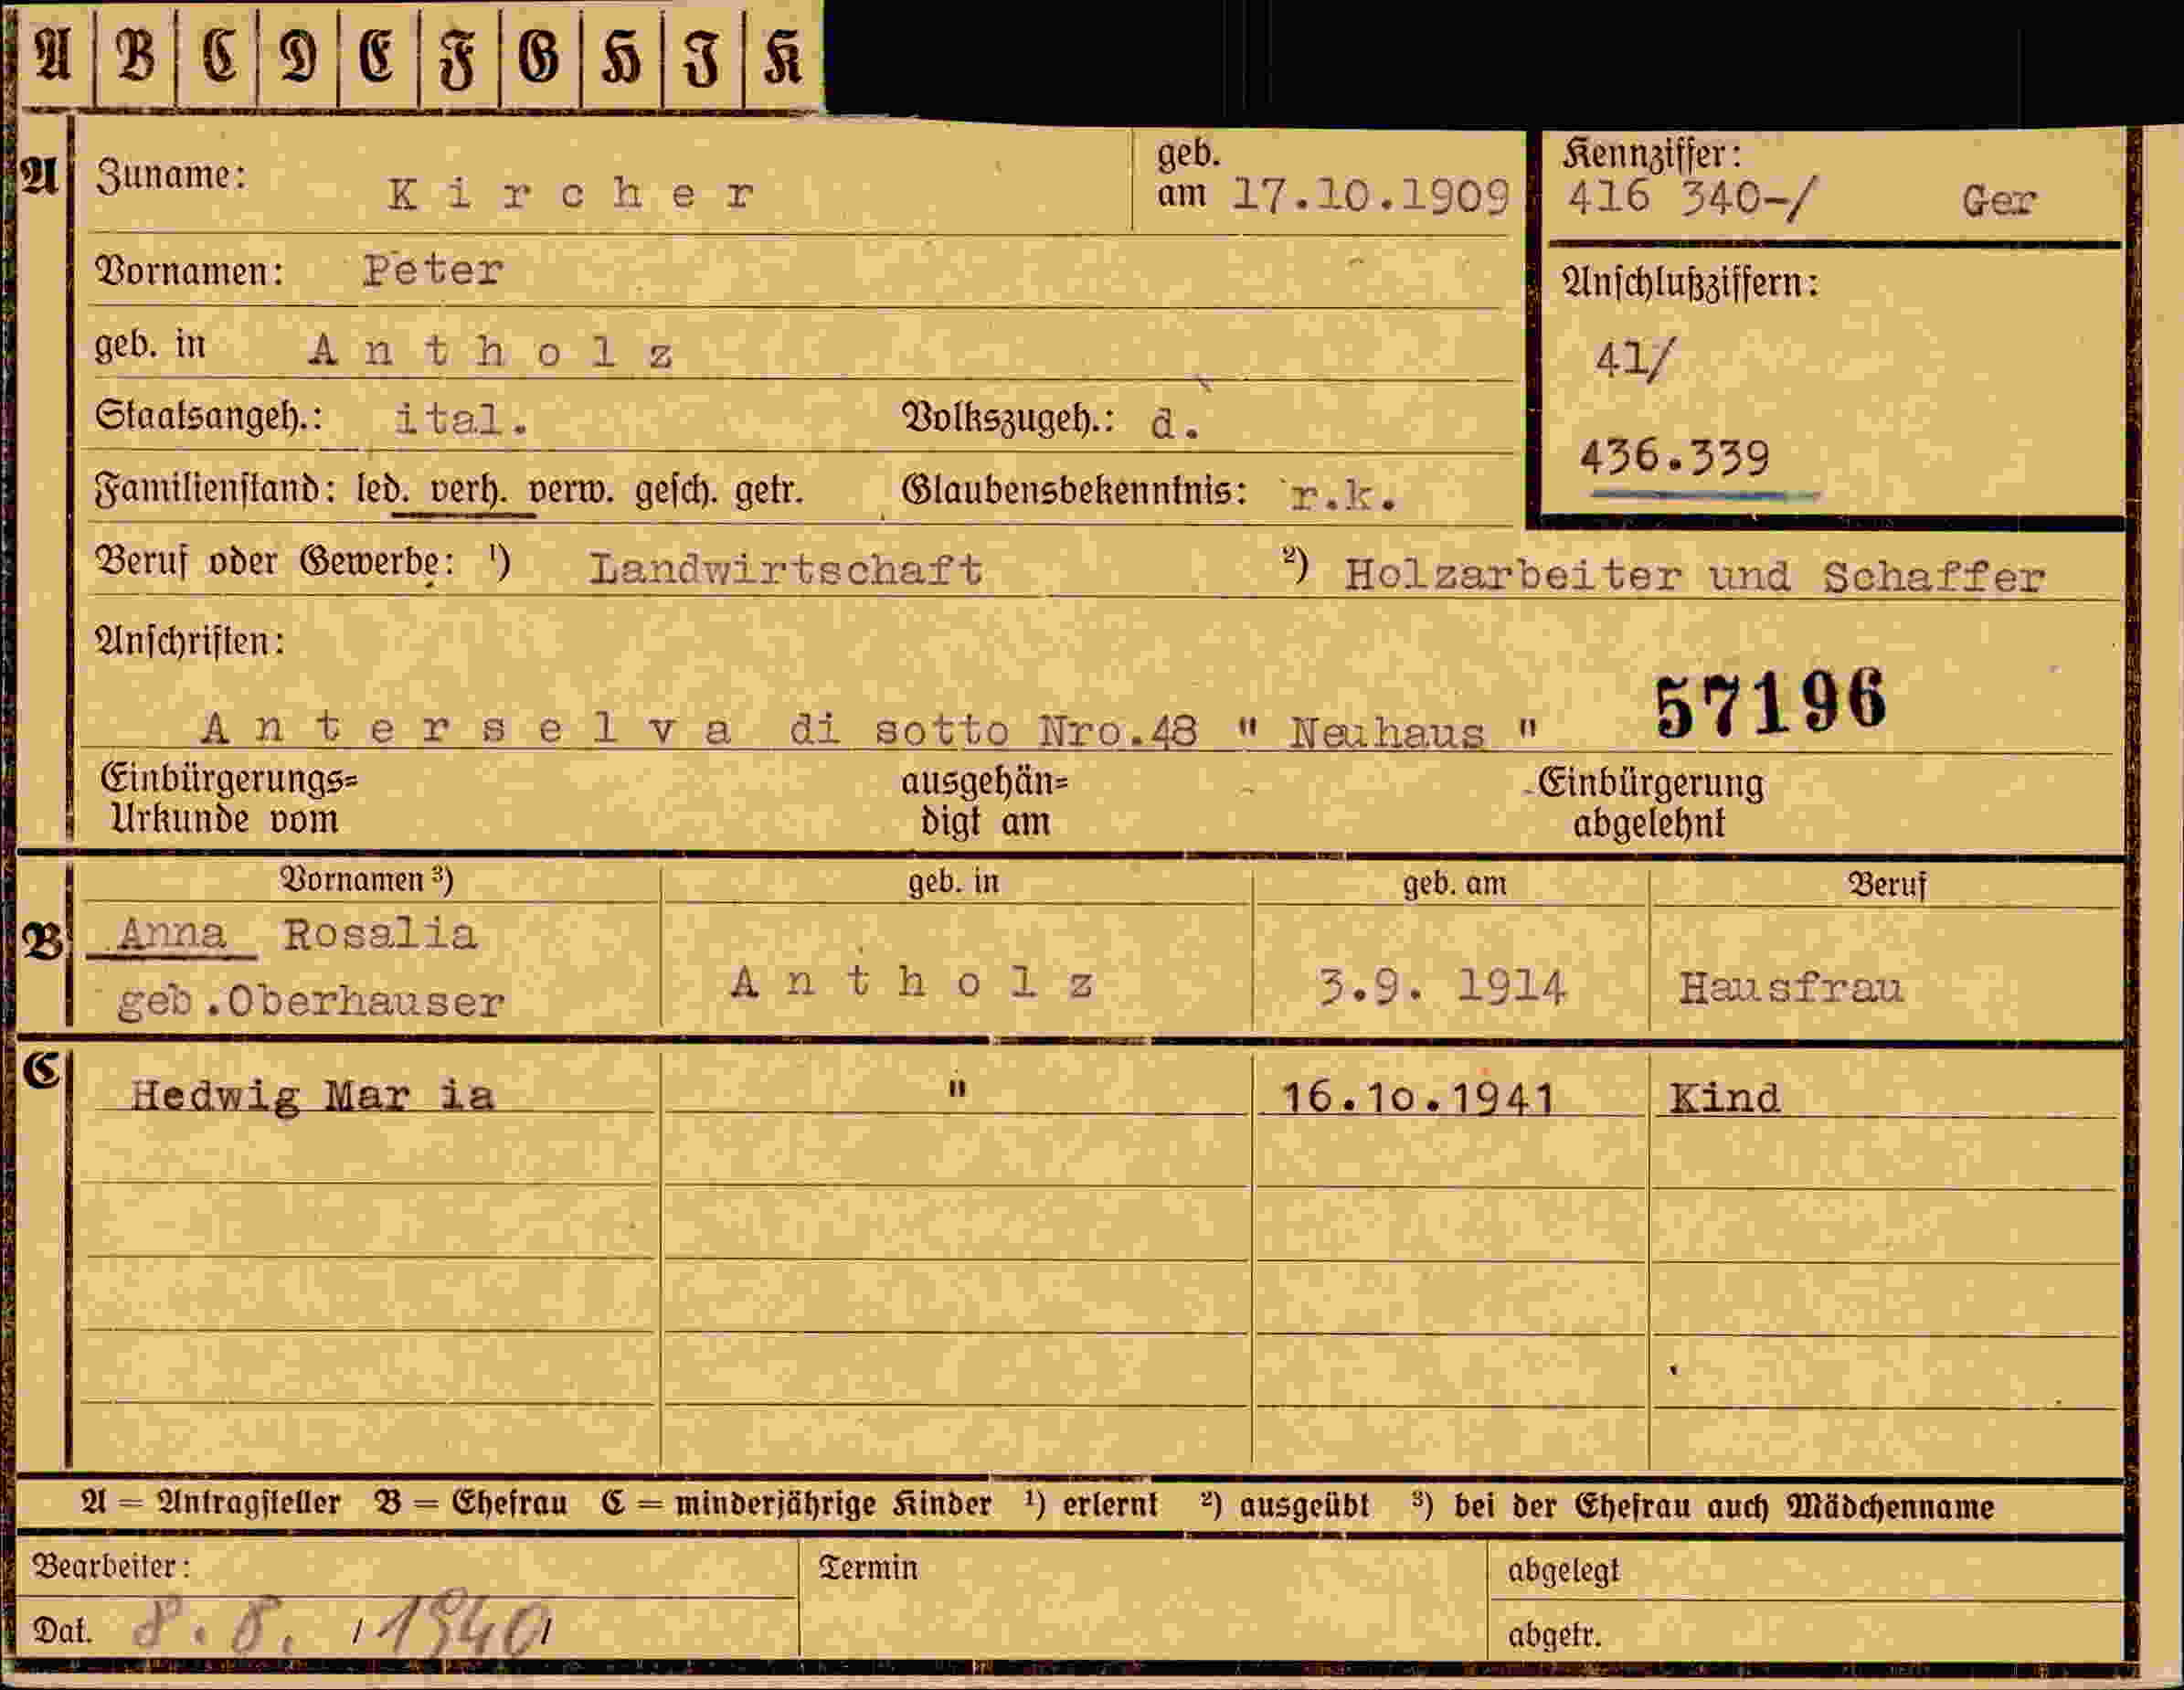 A B C D E F G H J K
A Zuname: Kircher geb. am 17.10.1909 Kennziffer: 416 340-/ Ger
Vornamen: Peter
Anschlußziffern:
geb. in Antholz
41/
Staatsangeh.: ital. Volkszugeh.: d.
436.339
Familienstand: led. verh. verw. gesch. getr. Glaubensbekenntnis: r.k.
Beruf oder Gewerbe: ¹) Landwirtschaft ²) Holzarbeiter und Schaffer
Anschriften:
57196
Anterselva di sotto Nro.48 " Neuhaus "
Einbürgerungs= ausgehän= Einbürgerung
Urkunde vom digt am abgelehnt
Vornamen ³) geb. in geb. am Beruf
B Anna Rosalia
geb.Oberhauser Antholz 3.9. 1914 Hausfrau
C
Hedwig Mar ia " 16.10.1941 Kind
A = Antragsteller B = Ehefrau C = minderjährige Kinder ¹) erlernt ²) ausgeübt ³) bei der Ehefrau auch Mädchenname
Bearbeiter: Termin abgelegt
Dat. 8.8. /1940/ abgetr.